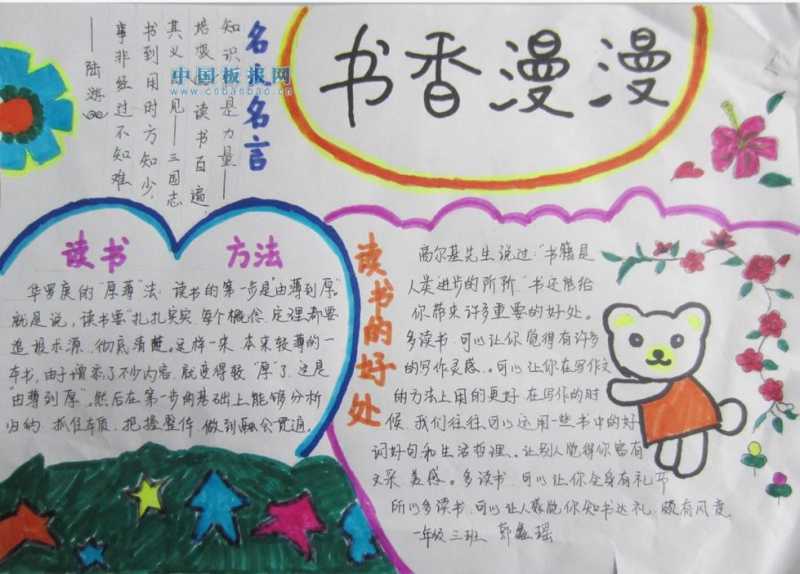 书香漫漫
名人名言
知识就是力量——
培根 读书百遍,
其义自见——三国志
书到用时方知少,
事非经过不知难
——陆游
中国板报网
www.cnbanbao.cn
读书 方法
华罗庚的“厚薄”法:读书的第一步是“由薄到厚”。
就是说,读书要“扎扎实实,每个概念、定理都要
追根求源、彻底清楚。这样一来,本来较薄的一
本书,由于增添了不少内容,就变得较“厚”了,这是
“由薄到厚”。然后在第一步的基础上能够分析
归纳,抓住本质,把握整体,做到融会贯通。
读书的好处
高尔基先生说过:“书籍是
人类进步的阶阶”书还能给
你带来许多重要的好处。
多读书,可以让你觉得有许多
的写作灵感。可以让你在写作文
的方法上用的更好。在写作的时
候,我们往往可以运用一些书中的好
词好句和生活哲理。让别人觉得你富有
文采、美感。多读书,可以让你全身有礼节
所以多读书,可以让人家说你知书达礼,颇有风度
一年级三班 郭